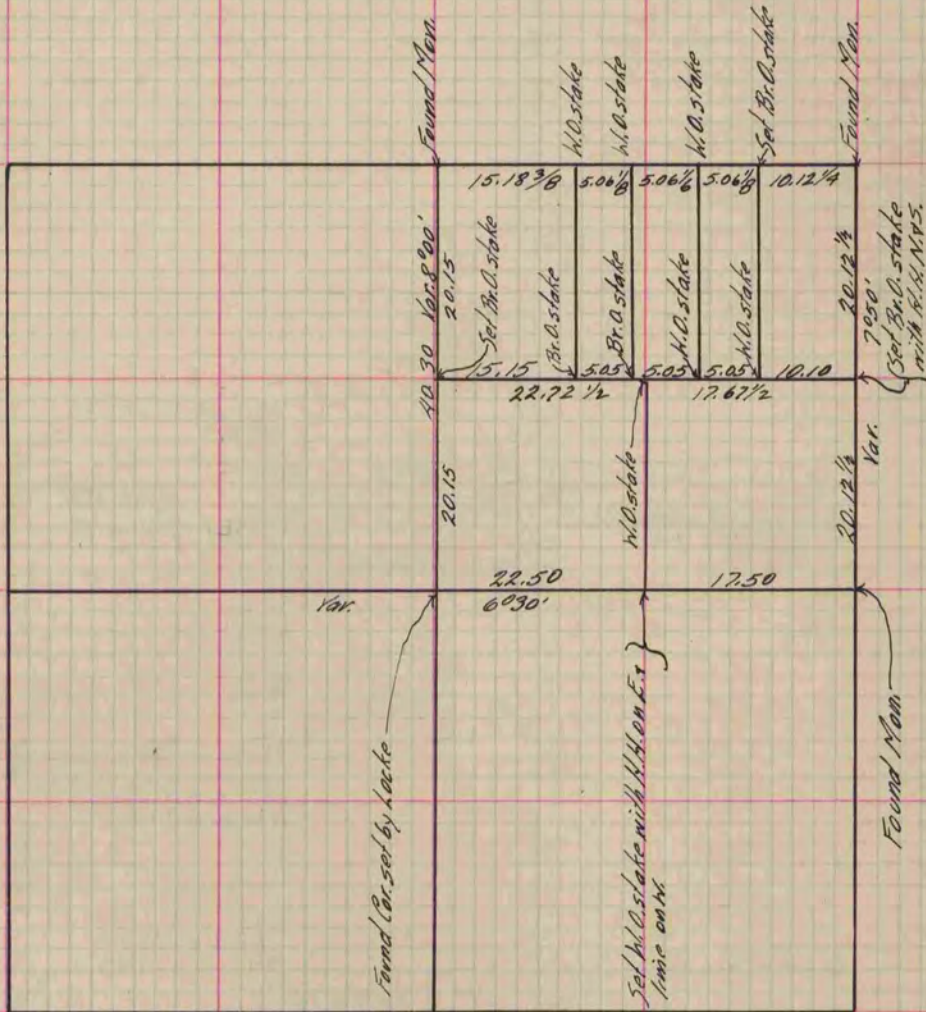 Found Mon.
W.O. stake
W.O. stake
W.O. stake
Set Br.O. stake
Found Mon.
15.18 3/8
5.06 1/8
5.06 1/8
5.06 1/8
10.12 1/4
40.30 Var. 8°00'
20.15
Set Br.O. stake
Br.O. stake
Br.O. stake
W.O. stake
W.O. stake
20.12 1/2
7°50'
(Set Br.O. stake
with H.H. N.&S.
15.15
5.05
5.05
5.05
10.10
22.72 1/2
17.67 1/2
Var.
20.15
W.O. stake
20.12 1/2
22.50
17.50
Var.
6°30'
Found Cor. set by Locke
Set W.O. stake with H.H. on E. &
lime on W.
Found Mon.